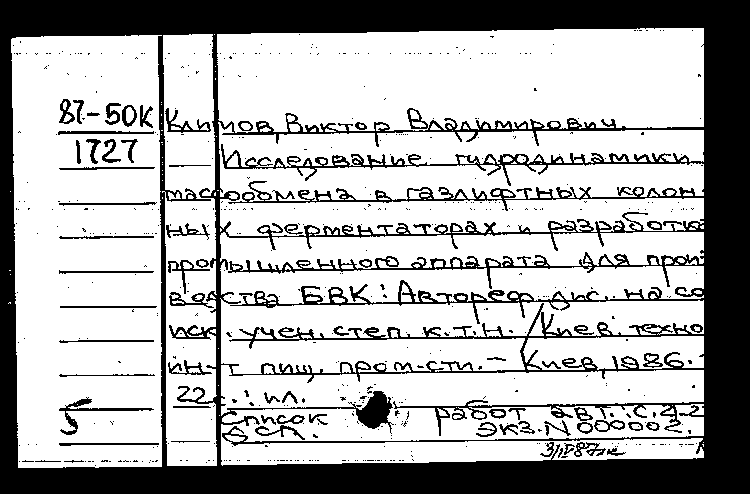 87-50К Климов, Виктор Владимирович.
1727 Исследование гидродинамики
массообмена в газлифтных колон-
ных ферментаторах и разработка
промышленного аппарата для прои
водства БВК : Автореф. дис. на со
иск. учен. степ. к.т.н. / Киев. техно
ин-т пищ. пром-сти. – Киев, 1986. –
22с. : ил.
Список работ авт.: с. 21-2
Б ДСП. Экз. N 000002.